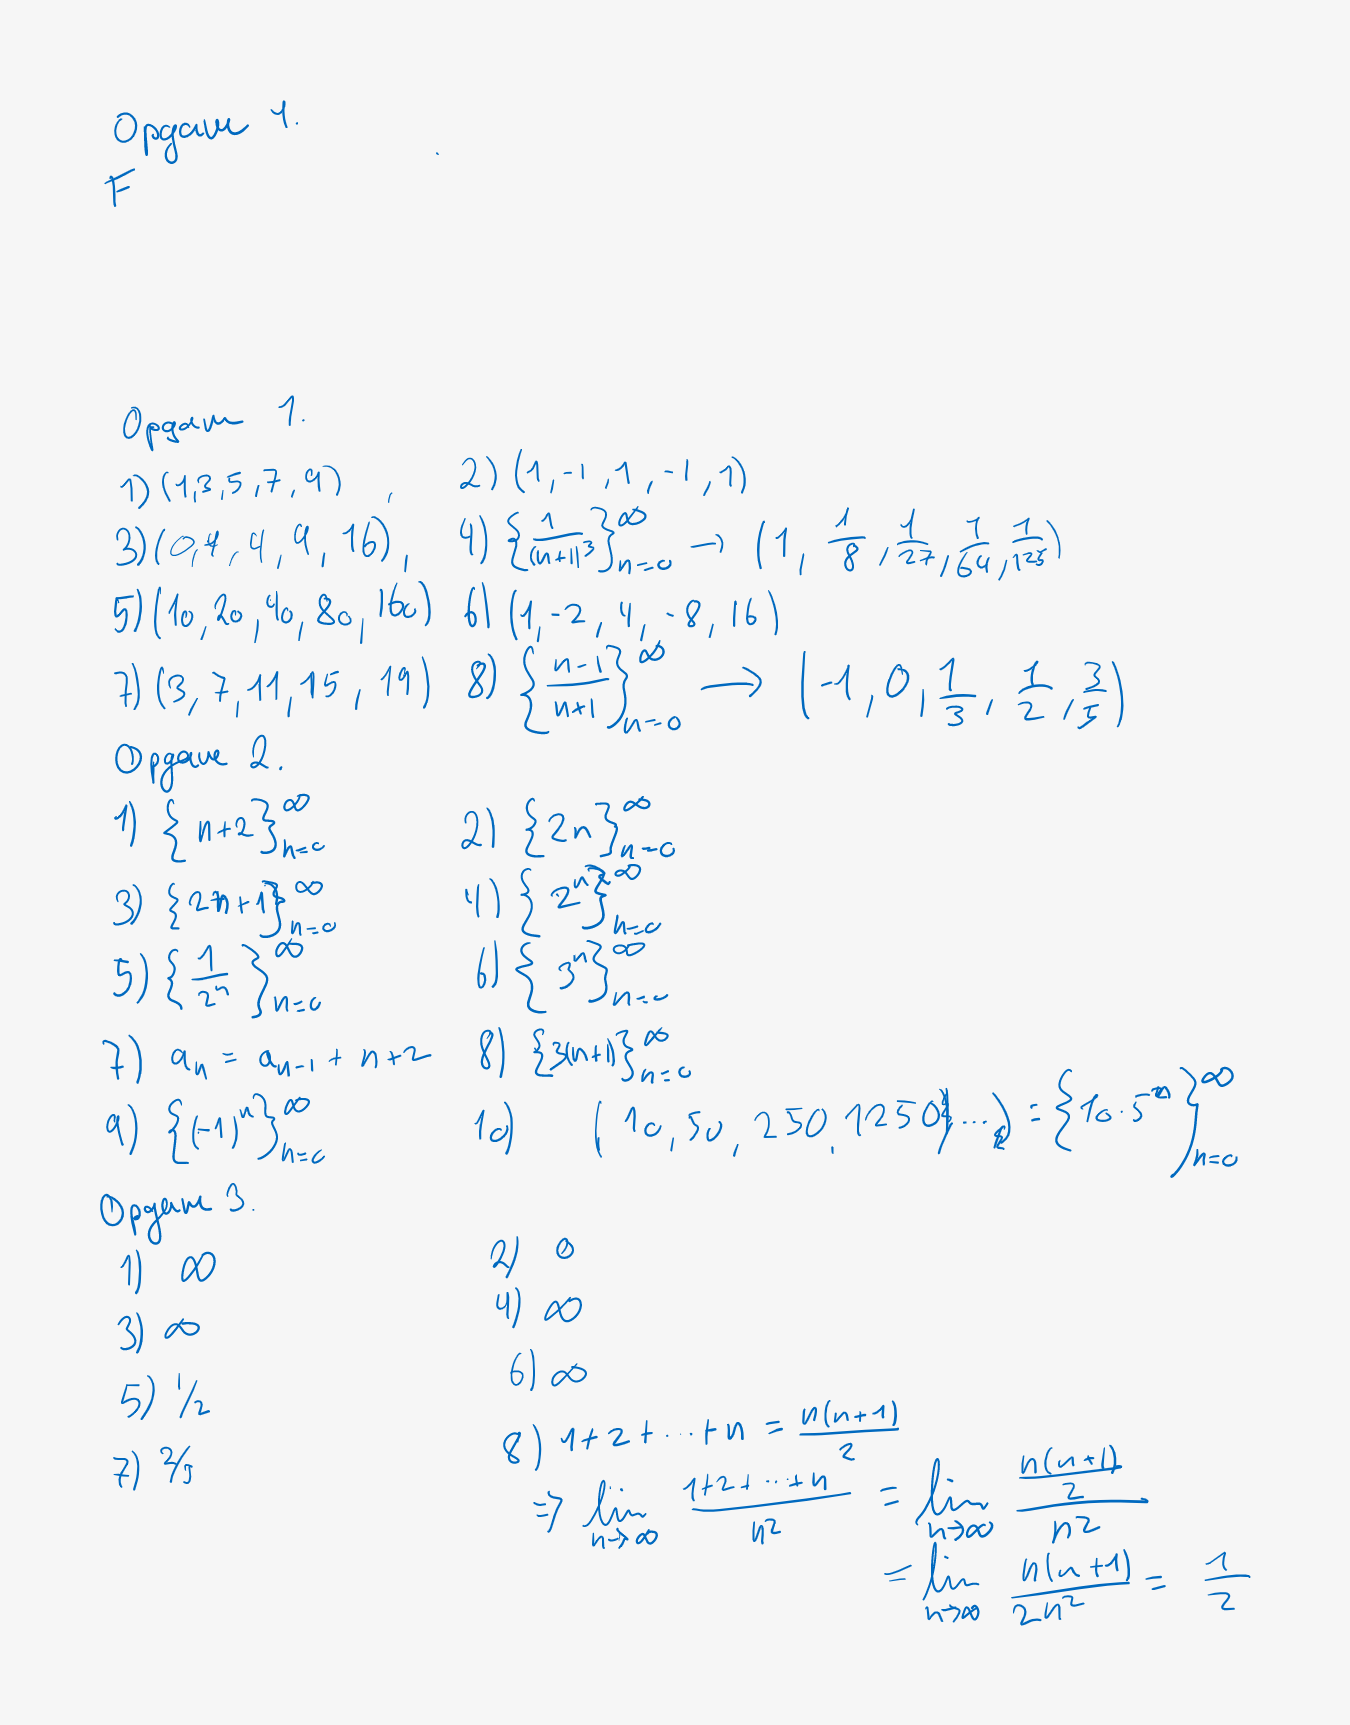 Opgave 4.
F
Opgave 1.
1) (1,3,5,7,9), 2) (1,-1,1,-1,1)
3) (0,1,4,9,16), 4) {1/(n+1)^3}_{n=0}^∞ → (1, 1/8, 1/27, 1/64, 1/125)
5) (10,20,40,80,160) 6) (1,-2,4,-8,16)
7) (3,7,11,15,19) 8) {n-1/n+1}_{n=0}^∞ → (-1,0,1/3,1/2,3/5)
Opgave 2.
1) {n+2}_{n=0}^∞ 2) {2n}_{n=0}^∞
3) {2n+1}_{n=0}^∞ 4) {2^n}_{n=0}^∞
5) {1/2^n}_{n=0}^∞ 6) {3^n}_{n=0}^∞
7) a_n = a_{n-1} + n+2 8) {3(n+1)}_{n=0}^∞
9) {(-1)^n}_{n=0}^∞ 10) (10,50,250,1250,...) = {10·5^n}_{n=0}^∞
Opgave 3.
1) ∞ 2) 0
3) ∞ 4) ∞
5) 1/2 6) ∞
7) 2/5 8) 1+2+...+n = n(n+1)/2
⇒ lim_{n→∞} 1+2+...+n/n^2 = lim_{n→∞} (n(n+1)/2)/n^2
= lim_{n→∞} n(n+1)/2n^2 = 1/2